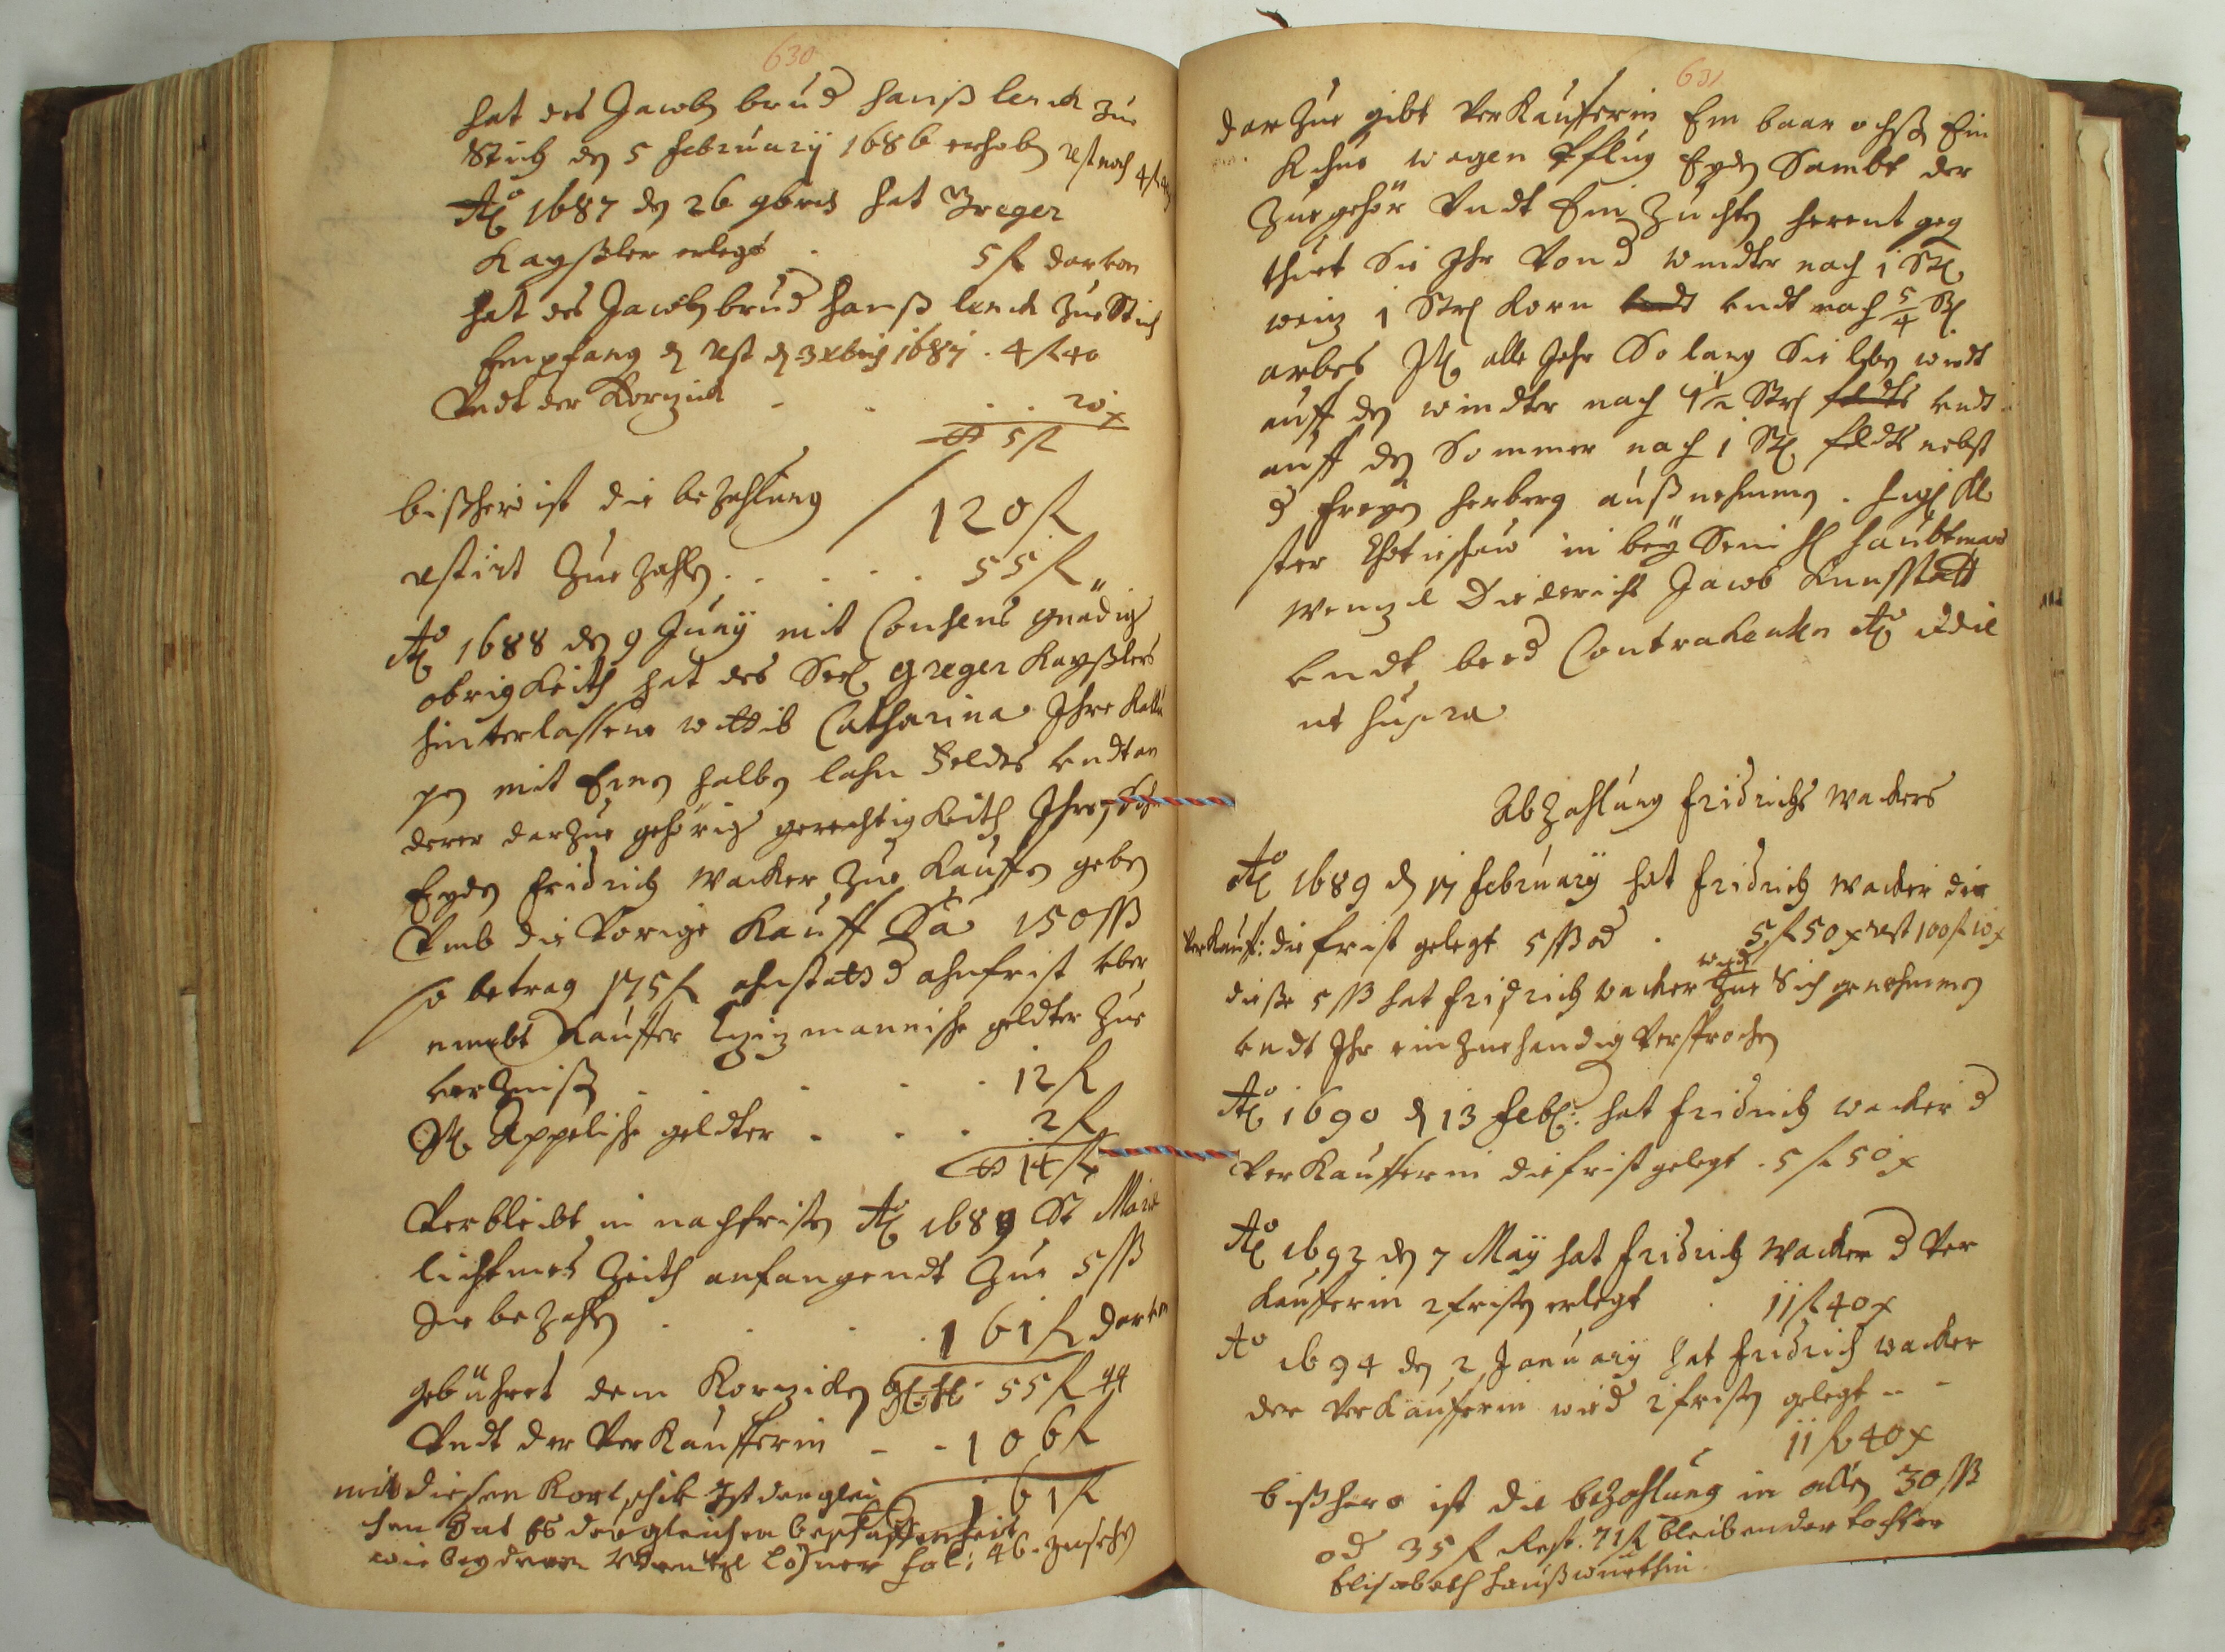 630
hat des Jacobs brud hanß lenck zue
Stich den 5 february 1686 erhoben rest noch 4 fl 40
Ao 1687 den 26 9bris hat Greger
Kayßler erlegt . 5 fl darvon
hat des Jacobs brud hanß lenck zue Stich
Empfang d rest d 3 xbris 1687 . 4 fl 40
Undt der Korzick - - . . 20 x
5 fl
bißhero ist die bezahlung 120 fl
restirt zue zahlen . . . . . 55 fl
Ao 1688 den 9 Juny mit Consens gnädig
obrigkeith hat des Seel Greger Kayßlers
hinterlassene wittib Catharina Ihre
mit Einen halben lahn Feldes undt an
derer darzue gehörig gerechtigkeith Ihrem
Eyden Fridrich Wacker zue Kauffen geben
Umb die Vorige Kauff Sa 150 ßß
so betrag 175 fl anstatt d ahnfrist über
nimbt Kauffer manische geldter zue
verzinßen . . . . . 12 fl
It Appelische geldter . . . 2 fl
14 fl
Verbleibt in nachfristen Ao 1689 St Mariæ
lichtmes Zeith anfangendt zue 5 ßß
Zue bezahlen . . . . 161 fl darvon
gebühret dem Korzicken 55 fl
Undt der Verkaufferin - - 106 fl
161 fl
mit diesen Kortschik Ist den glei
chen hat Es dergleichen beschaffenheit
wie bey deren Wentzl Lößner fol: 46. zusehen
631
darzue gibt Verkaufferin Ein baar ochßen Ein
Kuhe wagen Pflug Eyden Sambt der
Zuegehör Undt Ein Züchten herentgeg
thuet Sie Ihr Von d windter nach 1 Str
weiz 1 Str Korn undt nach 5/4 Str
arbes It alle Jahr So lang Sie leben wirdt
auff den windter nach 1 1/2 Str undt
auff den Sommer nach 1 Str feldts nebst
d freyen herberg außnehmen .
ster Chotieschau in beySein H haubtman
Wenzel Diederich Jacob
undt beed Contrahenten Ao die
ut supra
Abzahlung Fridrichs Wackers
Ao 1689 d 17 february hat Fridrich Wacker der
Verkauff: die frist gelegt 5 ßß od . 5 fl 50 x rest 100 fl 10 x
diese 5 ßß hat Fridrich Wacker wid Zue Sich genohmmen
undt Ihr einzuehendig Versprochen
Ao 1690 d 13 Feb: hat Fridrich Wacker d
Verkaufferin die frist gelegt . 5 fl 50 x
Ao 1692 den 7 May hat Fridrich Wacker d Ver
kaufferin 2 fristen erlegt . 11 fl 40 x
Ao 1694 den 2 January hat Fridrich Wacker
der Verkaufferin wied 2 fristen gelegt - -
11 fl 40 x
bißhero ist die bezahlung in allen 30 ßß
od 35 fl Rest. 71 fl bleiben der tochter
Elisabeth haußwürthin.